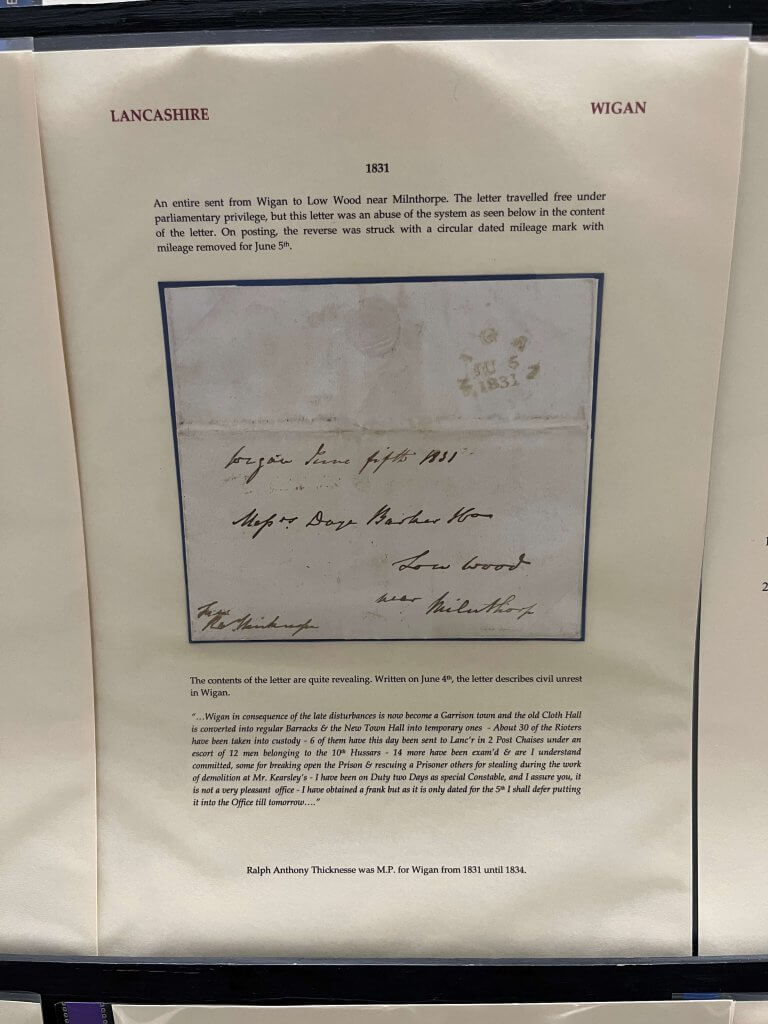 LANCASHIRE
WIGAN
1831
An entire sent from Wigan to Low Wood near Milnthorpe. The letter travelled free under
parliamentary privilege, but this letter was an abuse of the system as seen below in the content
of the letter. On posting, the reverse was struck with a circular dated mileage mark with
mileage removed for June 5th.
WIGAN
JU 5
1831
Wigan June fifth 1831
Messrs Daye Barker & Co
Low Wood
near Milnthorp
The contents of the letter are quite revealing. Written on June 4th, the letter describes civil unrest
in Wigan.
"…Wigan in consequence of the late disturbances is now become a Garrison town and the old Cloth Hall
is converted into regular Barracks & the New Town Hall into temporary ones - About 30 of the Rioters
have been taken into custody - 6 of them have this day been sent to Lanc'r in 2 Post Chaises under an
escort of 12 men belonging to the 10th Hussars - 14 more have been exam'd & are I understand
committed, some for breaking open the Prison & rescuing a Prisoner others for stealing during the work
of demolition at Mr. Kearsley's - I have been on Duty two Days as special Constable, and I assure you, it
is not a very pleasant office - I have obtained a frank but as it is only dated for the 5th I shall defer putting
it into the Office till tomorrow…."
Ralph Anthony Thicknesse was M.P. for Wigan from 1831 until 1834.